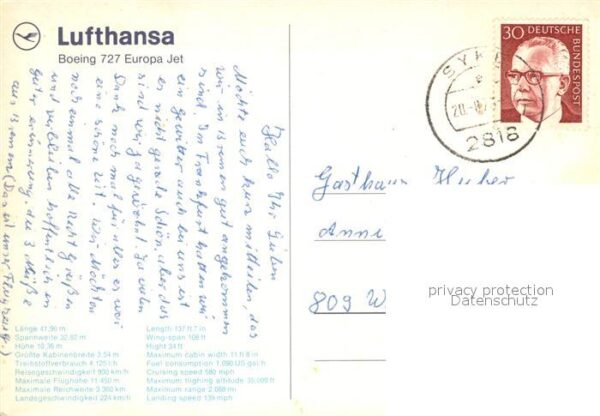 Lufthansa
Boeing 727 Europa Jet
Hallo Ihr Lieben
Möchte euch kurz mitteilen, das
wir in Bremen gut angekommen
sind. In Frankfurt hatten wir
ein Gewitter auch bei uns ist
es nicht gerade schön, aber das
sind wir ja gewöhnt. So vielen
Dank noch mal für alles es war
eine schöne Zeit. Wir Möchten
noch einmal alle recht Grüßen
und verbleiben hoffentlich in
guter erinnerung. die 3
aus Bremen (Das ist unser Flugzeug.)
30 DEUTSCHE
BUNDESPOST
SYKE
2818
Gasthaus Huber
Anni
809 W
privacy protection
Datenschutz
Länge 41,96 m
Spannweite 32,92 m
Höhe 10,36 m
Größte Kabinenbreite 3,54 m
Treibstoffverbrauch 4.125 l/h
Reisegeschwindigkeit 930 km/h
Maximale Flughöhe 11.450 m
Maximale Reichweite 3.360 km
Landegeschwindigkeit 224 km/h
Length 137 ft 7 in
Wing-span 108 ft
Hight 34 ft
Maximum cabin width 11 ft 8 in
Fuel consumption 1,090 US gal/h
Cruising speed 580 mph
Maximum flighing altitude 35,009 ft
Maximum range 2,088 mi
Landing speed 139 mph